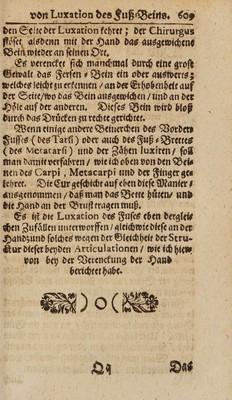 von Luxation des Fuß-Beins. 609
den Seite der Luxation kehret; der Chirurgus
stößet alsdenn mit der Hand das ausgewichene
Bein wieder an seinen Ort.
Es verencket sich manchmal durch eine groſt
Gewalt das Fersen-Bein ein oder auswerts;
welches leicht zu erkennen / an der Erhobenheit auf
der Seite/wo das Bein ausgewichen / und an der
Höle auf der anderen. Dieses Bein wird bloß
durch das Drücken zu rechte gerichtet.
Wenn einige andere Beinerchen des Vorders
Fusses (des Tarsi) oder auch des Fuß-Bretes
(des Metatarsi) und der Zähen luxiren / soll
man damit verfahren / wie ich oben von den Bei-
nen des Carpi, Metacarpi und der Finger ge-
lehret. Die Cur geschicht auf eben diese Manier /
ausgenommen / daß man das Bette hüten / und
die Hand an der Brust tragen muß.
Es ist die Luxation des Fuses eben derglei-
chen Zufällen unterworffen / gleichwie diese an der
Hand und solches wegen der Gleichheit der Stru-
ctur dieser beyden Articulationen / wie ich hie-
von bey der Verenckung der Hand
berichtet habe.
)O(
Qq Das